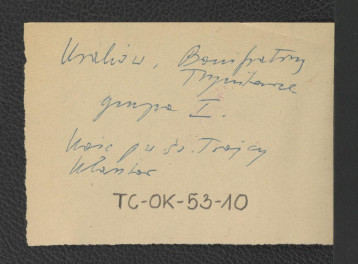 Kraków, Bonifratrzy
Trynitarze
grupa I.
Kośc p w św. Trójcy
Klasztor
TC-OK-53-10